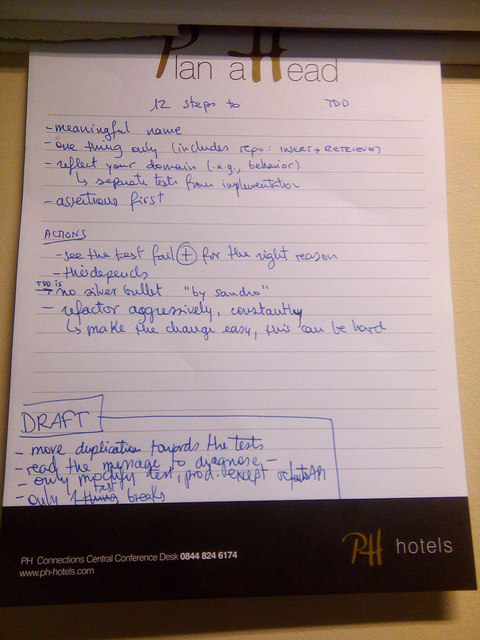 Plan aHead
12 steps to TDD
- meaningful name
- one thing only (includes repo: INSERT + RETRIEVE)
- reflect your domain (e.g., behavior)
↳ separate tests from implementation
- assertions first
ACTIONS
- see the test fail + for the right reason
- this depends
TDD is
- no silver bullet "by sandro"
- refactor aggressively, constantly
↳ make the change easy, this can be hard
DRAFT
- move duplication towards the tests
- read the message to diagnose -
- only modify test, prod. except
- only 1 test breaks
PH Connections Central Conference Desk 0844 824 6174
www.ph-hotels.com
PH hotels